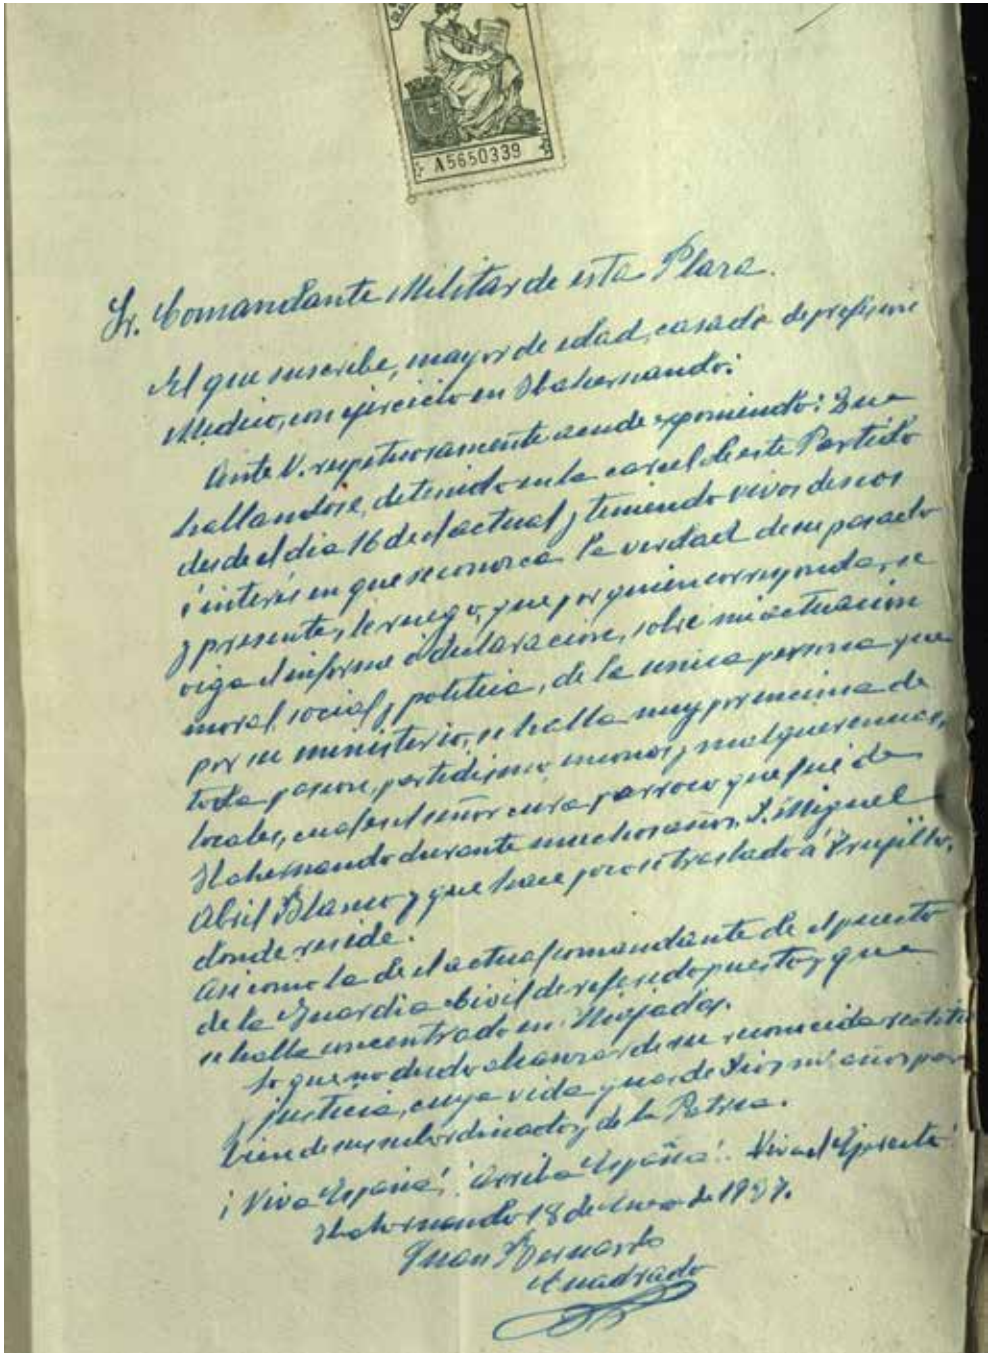 A5650339
Sr. Comandante Militar de esta Plaza.
El que suscribe, mayor de edad, casado de profesion
Medico, con ejercicio en Ibahernando:
Ante V. respetuosamente acude exponiendo: Que
hallandose, detenido en la carcel de este Partido
desde el dia 16 de el actual y teniendo vivos deseos
é interés en que se conozca la verdad de su pasado
y presente, le ruego, que por quien corresponda, se
oiga el informe ó declaracion, sobre mi actuacion
moral, social y politica, de la unica persona que
por su ministerio, se halla muy por encima de
toda pasion, partidismo, encono, y malquerencias,
locales, cual es el señor cura parroco que fué de
Ibahernando durante muchos años, D. Miguel
Abril Blanco y que hace poco se trasladó á Trujillo,
donde reside.
Asi como la de el actual comandante de el puesto
de la Guardia Civil de referido puesto y que
se halla concentrado en Miajadas.
Lo que no dudo alcanzar de su reconocida rectitud
y justicia, cuya vida guarde Dios m. años para
bien de sus subordinados y de la Patria.
¡Viva España! ¡Arriba España! Viva el Ejercito!
Ibahernando 18 de Enero de 1937.
Juan Bernardo
Cuadrado